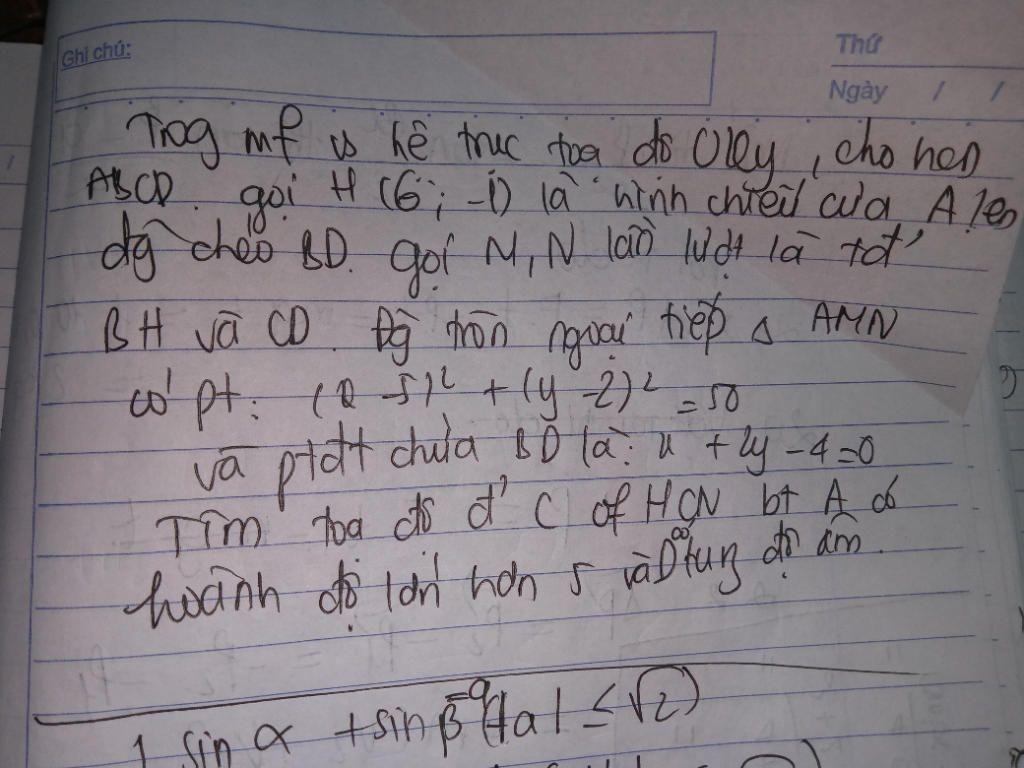 Ghi chú:
Thứ
Ngày / /
Trog mf vs hê trục tọa độ Oxy, cho hcn
ABCD. gọi H (6; -1) là hình chiếu của A lên
đg chéo BD. gọi M, N lần lượt là tđ'
BH và CD. Đg tròn ngoại tiếp Δ AMN
có pt: (x - 5)² + (y - 2)² = 50
và ptđt chứa BD là: x + 2y - 4 = 0
Tìm tọa độ đ' C of HCN bt A có
hoành độ lớn hơn 5 và D có tung độ âm.
1 sin α + sin β = a (|a| ≤ √2)